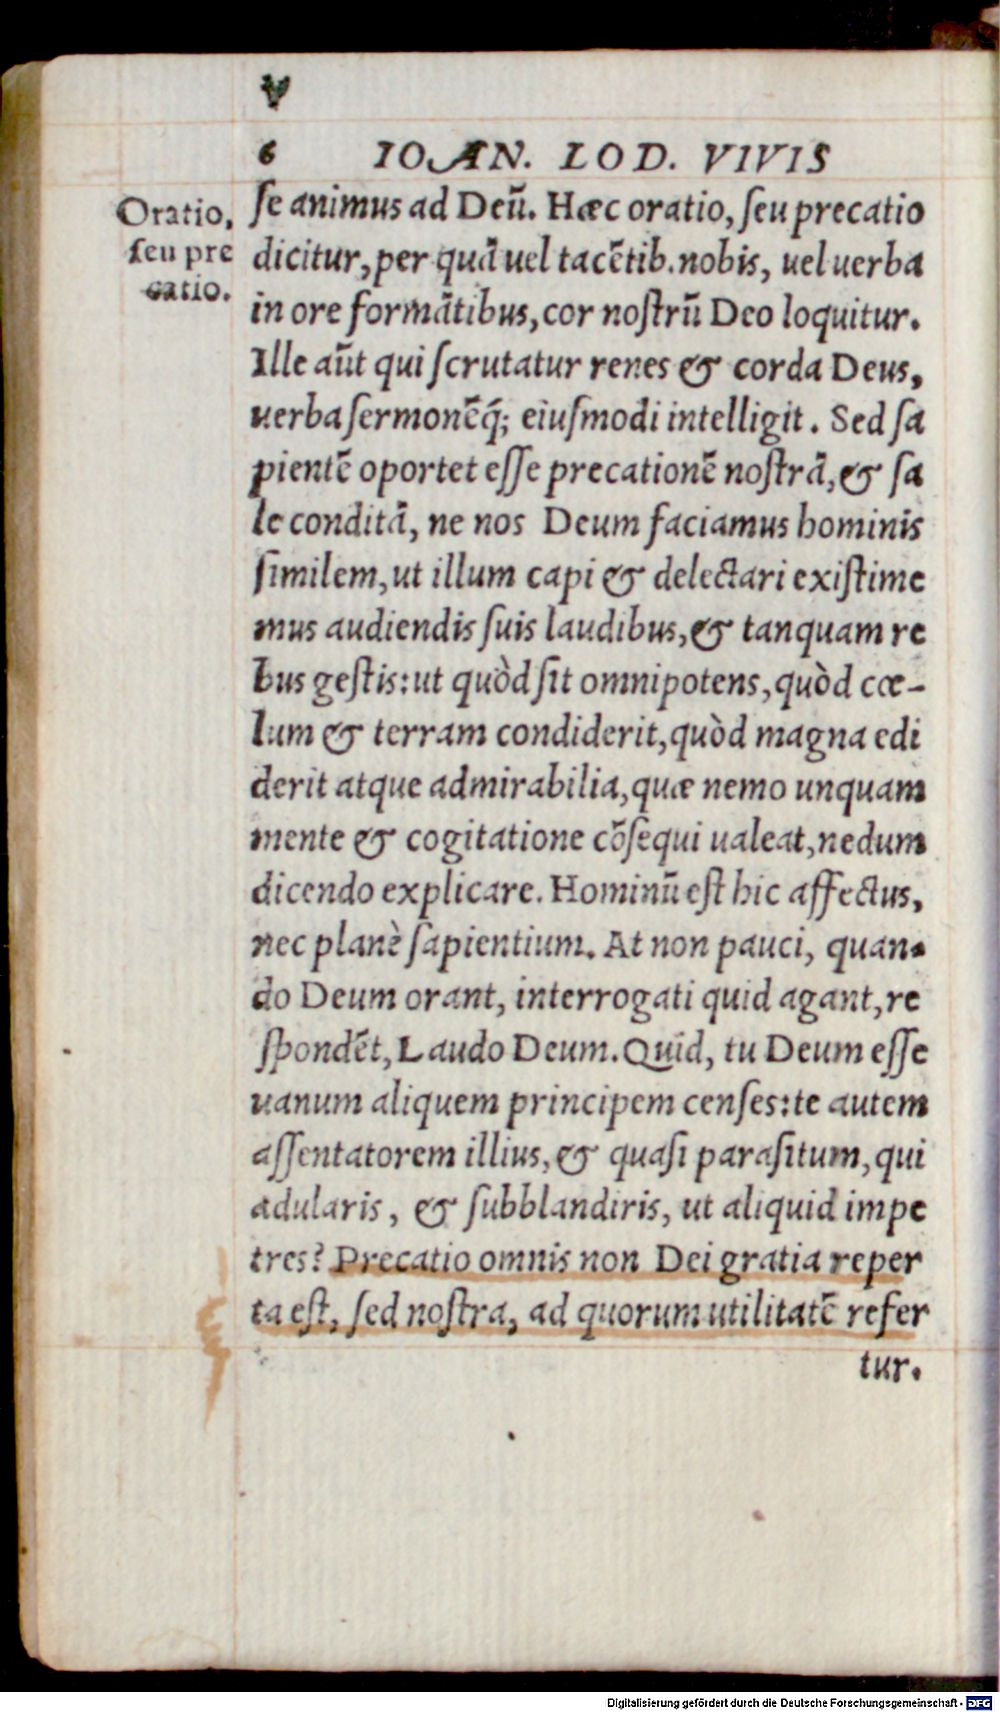 6 IOAN. LOD. VIVIS
Oratio,
seu pre
catio.
ſe animus ad Deū. Hæc oratio, ſeu precatio
dicitur, per quā uel tacētib. nobis, uel uerba
in ore formātibus, cor noſtrū Deo loquitur.
Ille aūt qui ſcrutatur renes & corda Deus,
uerba ſermonēq́; eiuſmodi intelligit. Sed ſa
pientē oportet eſſe precationē noſtrā, & ſa
le conditā, ne nos Deum faciamus hominis
ſimilem, ut illum capi & delectari exiſtime
mus audiendis ſuis laudibus, & tanquam re
bus geſtis: ut quòd ſit omnipotens, quòd cœ-
lum & terram condiderit, quòd magna edi
derit atque admirabilia, quæ nemo unquam
mente & cogitatione cōſequi ualeat, nedum
dicendo explicare. Hominū eſt hic affectus,
nec planè ſapientium. At non pauci, quan-
do Deum orant, interrogati quid agant, re
ſpondēt, Laudo Deum. Quid, tu Deum eſſe
uanum aliquem principem cenſes: te autem
aſſentatorem illius, & quaſi paraſitum, qui
adularis, & ſubblandiris, ut aliquid impe
tres? Precatio omnis non Dei gratia reper
ta eſt, ſed noſtra, ad quorum utilitatē refer
tur.
Digitalisierung gefördert durch die Deutsche Forschungsgemeinschaft - DFG